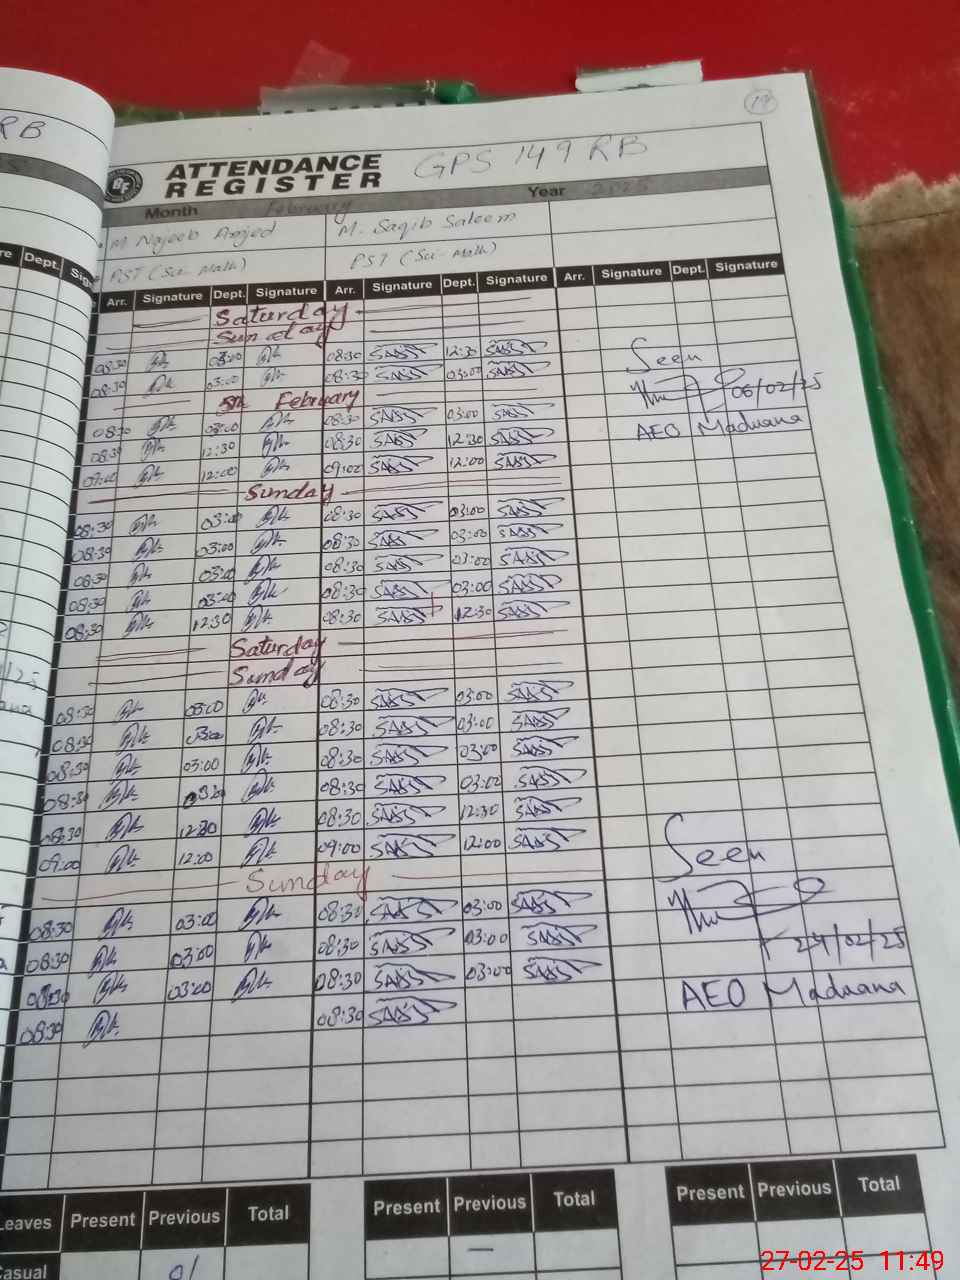 19
RB
ATTENDANCE
REGISTER
GPS 149 RB
Month February Year 2025
M Najeeb Amjed M. Saqib Saleem
PST (Sci- Math) PST (Sci- Math)
Dept. Arr. Signature Dept. Signature Arr. Signature Dept. Signature Arr. Signature Dept. Signature
Saturday
Sunday
08:30 03:00 08:30 12:30 Seen
08:30 03:00 08:30 03:00 06/02/25
5th February
08:30 03:00 08:30 03:00 AEO Maduana
08:30 12:30 08:30 12:30
09:00 12:00 09:00 12:00
Sunday
08:30 03:00 08:30 03:00
08:30 03:00 08:30 03:00
08:30 03:00 08:30 03:00
08:30 03:00 08:30 03:00
08:30 12:30 08:30 12:30
Saturday
Sunday
08:30 03:00 08:30 03:00
08:30 03:00 08:30 03:00
08:30 03:00 08:30 03:00
08:30 03:00 08:30 03:00
08:30 12:30 08:30 12:30
09:00 12:00 09:00 12:00 Seen
Sunday
08:30 03:00 08:30 03:00
08:30 03:00 08:30 03:00
08:30 03:00 08:30 03:00 AEO Maduana
08:30 08:30
Leaves Present Previous Total Present Previous Total Present Previous Total
Casual
27-02-25 11:49